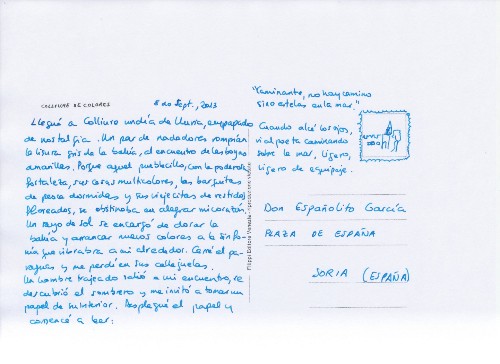 COLLIURE DE COLORES
8 no Sept., 2013
Llegué a Colliure un día de lluvia, empapado
de nostalgia. Un par de nadadores rompían
la lisura gris de la bahía, al encuentro de las boyas
amarillas. Porque aquel pueblecillo, con la poderosa
fortaleza, sus casas multicolores, las barquitas
de pesca dormidas y sus viejecitas de vestidos
floreados, se obstinaba en alegrar mi corazón.
Un rayo de sol se encargó de dorar la
bahía y arrancar nuevos colores a la sinfo-
nía que vibraba a mi alrededor. Cerré el pa-
raguas y me perdí en sus callejuelas.
Un hombre trajeado salió a mi encuentro, se
descubrió el sombrero y me invitó a tomar un
papel de su interior. Desplegué el papel y
comencé a leer:
"Caminante, no hay camino
sino estelas en la mar."
Cuando alcé los ojos,
vi al poeta caminando
sobre la mar, ligero,
ligero de equipaje.
Don Españolito García
PLAZA DE ESPAÑA
SORIA (ESPAÑA)